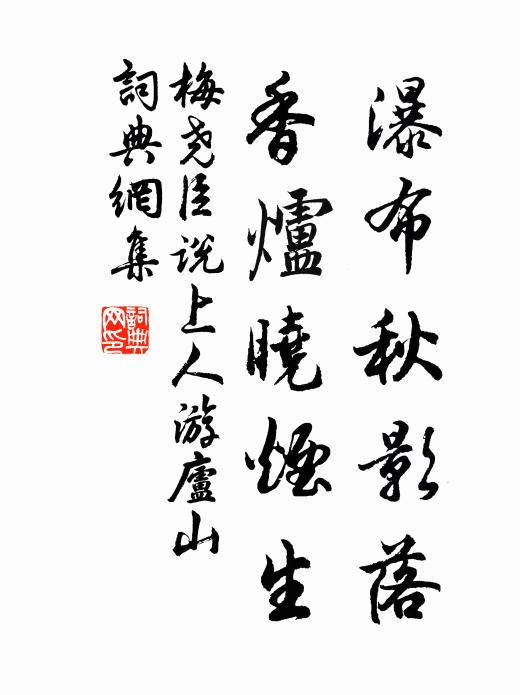 瀑布秋影落
香爐曉煙生
梅堯臣説上人游廬山
詞典網集
詞典网印